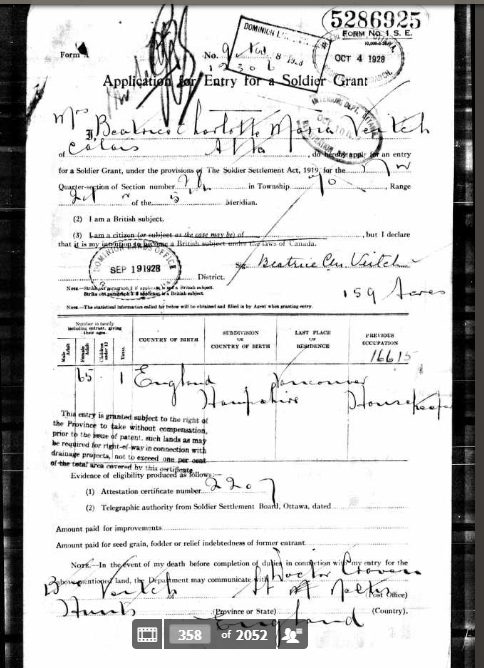 5286925
Form A
No.
FORM NO. I. S. E.
DOMINION
OCT 4 1928
Application for Entry for a Soldier Grant
Mrs
I, Beatrice Charlotte Maria Veitch
of Calais Alta , do hereby apply for an entry
for a Soldier Grant, under the provisions of The Soldier Settlement Act, 1919, for the
Quarter-section of Section number in Township 70 , Range
of the 5 Meridian.
(2) I am a British subject.
(3) I am a citizen (or subject as the case may be) of , but I declare
that it is my intention to become a British subject under the laws of Canada.
DOMINION LANDS OFFICE
SEP 19 1928
District.
Beatrice Cm Veitch
159 Acres
NOTE.—Strike out paragraph 3 if applicant is a British subject.
Strike out paragraph 2 if applicant is not a British subject.
NOTE.—The statistical information called for below will be obtained and filled in by Agent when granting entry.
Number in family including entrant, giving their ages.
Male Adult
Female Adult
Children under 12
Total.
COUNTRY OF BIRTH
SUBDIVISION OF COUNTRY OF BIRTH
LAST PLACE OF RESIDENCE
PREVIOUS OCCUPATION
16615
65 1 England Vancouver
Hampshire Housekeeper
This entry is granted subject to the right of
the Province to take without compensation,
prior to the issue of patent, such lands as may
be required for right-of-way in connection with
drainage projects, not to exceed one per cent
of the total area covered by this certificate
Evidence of eligibility produced as follows:
(1) Attestation certificate number 2207
(2) Telegraphic authority from Soldier Settlement Board, Ottawa, dated
Amount paid for improvements
Amount paid for seed grain, fodder or relief indebtedness of former entrant.
NOTE.—In the event of my death before completion of duties in connection with my entry for the
above-mentioned land, the Department may communicate with Doctor Craven
Veitch St (Post Office)
Hunts (Province or State) England (Country).
358 of 2052